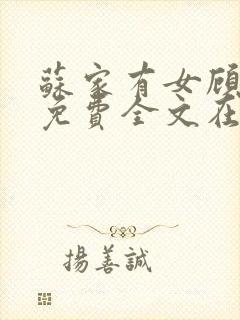 蘇家有女顧
免費全文在
揚善誠